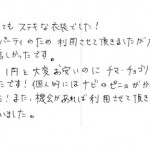 ても ステキな衣装でした！
パーティのため 利用させて頂きましたが
しかったです。
1円と大変お安いのに チマ・チョゴリ
たです！個人的には ナビのピニョが
た！また、機会があれば 利用させて頂き
いました。